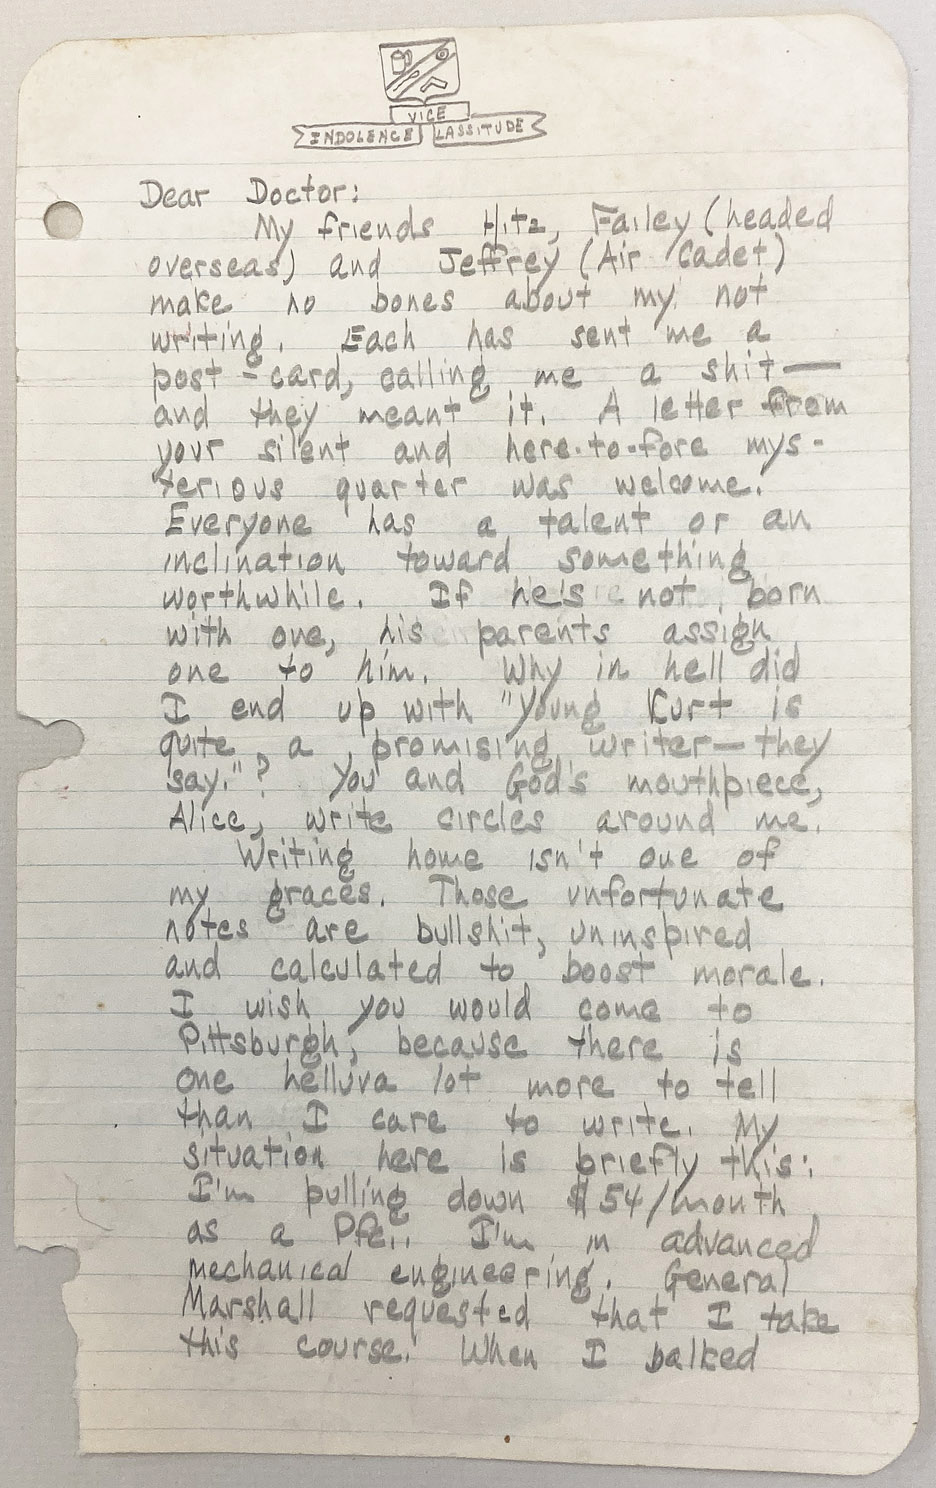 VICE
INDOLENCE LASSITUDE
Dear Doctor:
My friends Hitz, Failey (headed
overseas) and Jeffrey (Air Cadet)
make no bones about my not
writing. Each has sent me a
post-card, calling me a shit—
and they meant it. A letter from
your silent and here-to-fore mys-
terious quarter was welcome.
Everyone has a talent or an
inclination toward something
worthwhile. If he's not born
with one, his parents assign
one to him. Why in hell did
I end up with "Young Kurt is
quite a promising writer—they
say."? You and God's mouthpiece,
Alice, write circles around me.
Writing home isn't one of
my graces. Those unfortunate
notes are bullshit, uninspired
and calculated to boost morale.
I wish you would come to
Pittsburgh, because there is
one helluva lot more to tell
than I care to write. My
situation here is briefly this:
I'm pulling down $54/month
as a Pfc.. I'm in advanced
mechanical engineering. General
Marshall requested that I take
this course. When I balked